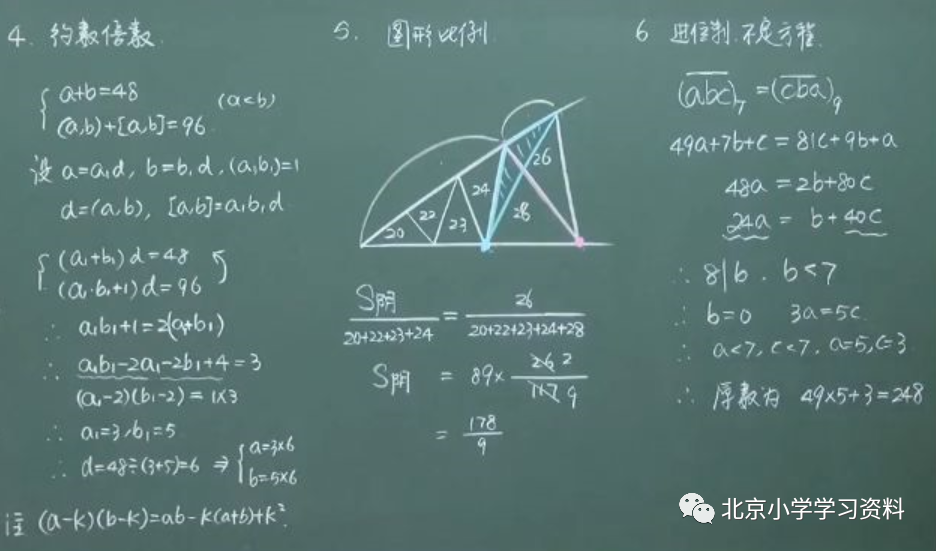 4. 约数倍数
{ a+b=48
(a,b)+[a,b]=96 (a<b)
设 a=a₁d, b=b₁d, (a₁,b₁)=1
d=(a,b), [a,b]=a₁b₁d
{ (a₁+b₁)d=48
(a₁·b₁+1)d=96
∴ a₁b₁+1=2(a₁+b₁)
∴ a₁b₁-2a₁-2b₁+4=3
(a₁-2)(b₁-2)=1×3
∴ a₁=3, b₁=5
∴ d=48÷(3+5)=6 ⇒ { a=3×6
b=5×6
注 (a-k)(b-k)=ab-k(a+b)+k².
5. 图形比例
20 22 23 24 28 26
S阴/(20+22+23+24) = 26/(20+22+23+24+28)
S阴 = 89× 26 2/117 9
= 178/9
6 进位制.不定方程.
(abc)₇=(cba)₉
49a+7b+c=81c+9b+a
48a=2b+80c
24a= b+40c
∴ 8|b. b<7
∴ b=0 3a=5c
∴ a<7, c<7, a=5, c=3
∴ 原数为 49×5+3=248
北京小学学习资料